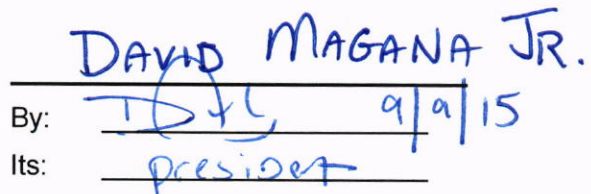 DAVID MAGANA JR.
By: 9/9/15
Its: president